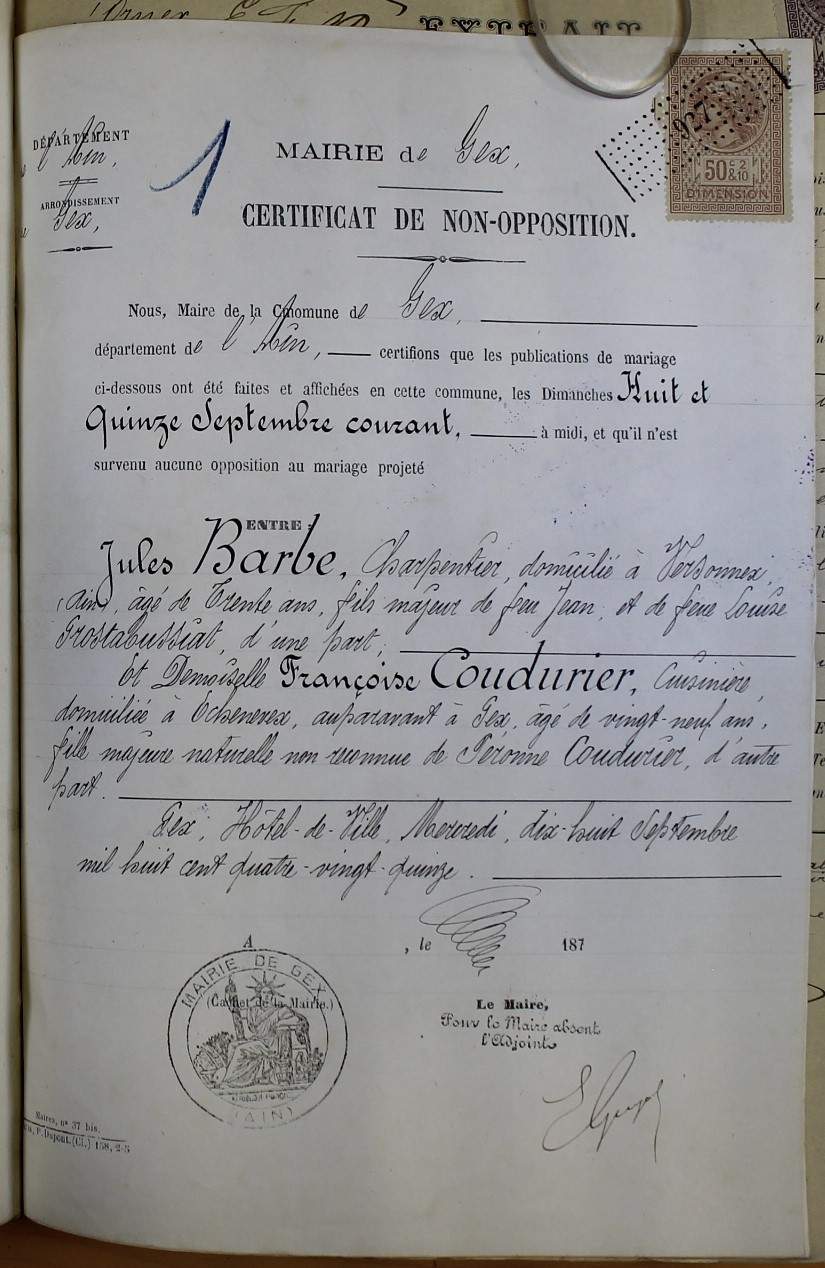 EXTRAIT
DÉPARTEMENT
de l'Ain,
ARRONDISSEMENT
de Gex,
1
MAIRIE de Gex,
CERTIFICAT DE NON-OPPOSITION.
927
50 c 2
&10
DIMENSION
Nous, Maire de la Cmomune de Gex,
département de l'Ain, certifions que les publications de mariage
ci-dessous ont été faites et affichées en cette commune, les Dimanches Huit et
Quinze Septembre courant, à midi, et qu'il n'est
survenu aucune opposition au mariage projeté
ENTRE :
Jules Barbe, Charpentier, domicilié à Versonnex,
(Ain), âgé de Trente ans, fils majeur de feu Jean, et de feue Louise
Prostabussiat, d'une part;
Et Demoiselle Françoise Coudurier, Cuisinière,
domiciliée à Echenevex, auparavant à Gex, âgé de vingt-neuf ans,
fille majeure naturelle non reconnue de Péronne Coudurier, d'autre
part.
Gex, Hôtel-de-Ville, Mercredi, dix-huit Septembre
mil huit cent quatre-vingt-quinze.
A , le 187
MAIRIE DE GEX
(Cachet de la Mairie.)
(AIN)
Le Maire,
Pour le Maire absent
l'Adjoint
Mairies, nº 37 bis.
P. Dupont. (Cl.) 158, 2-5